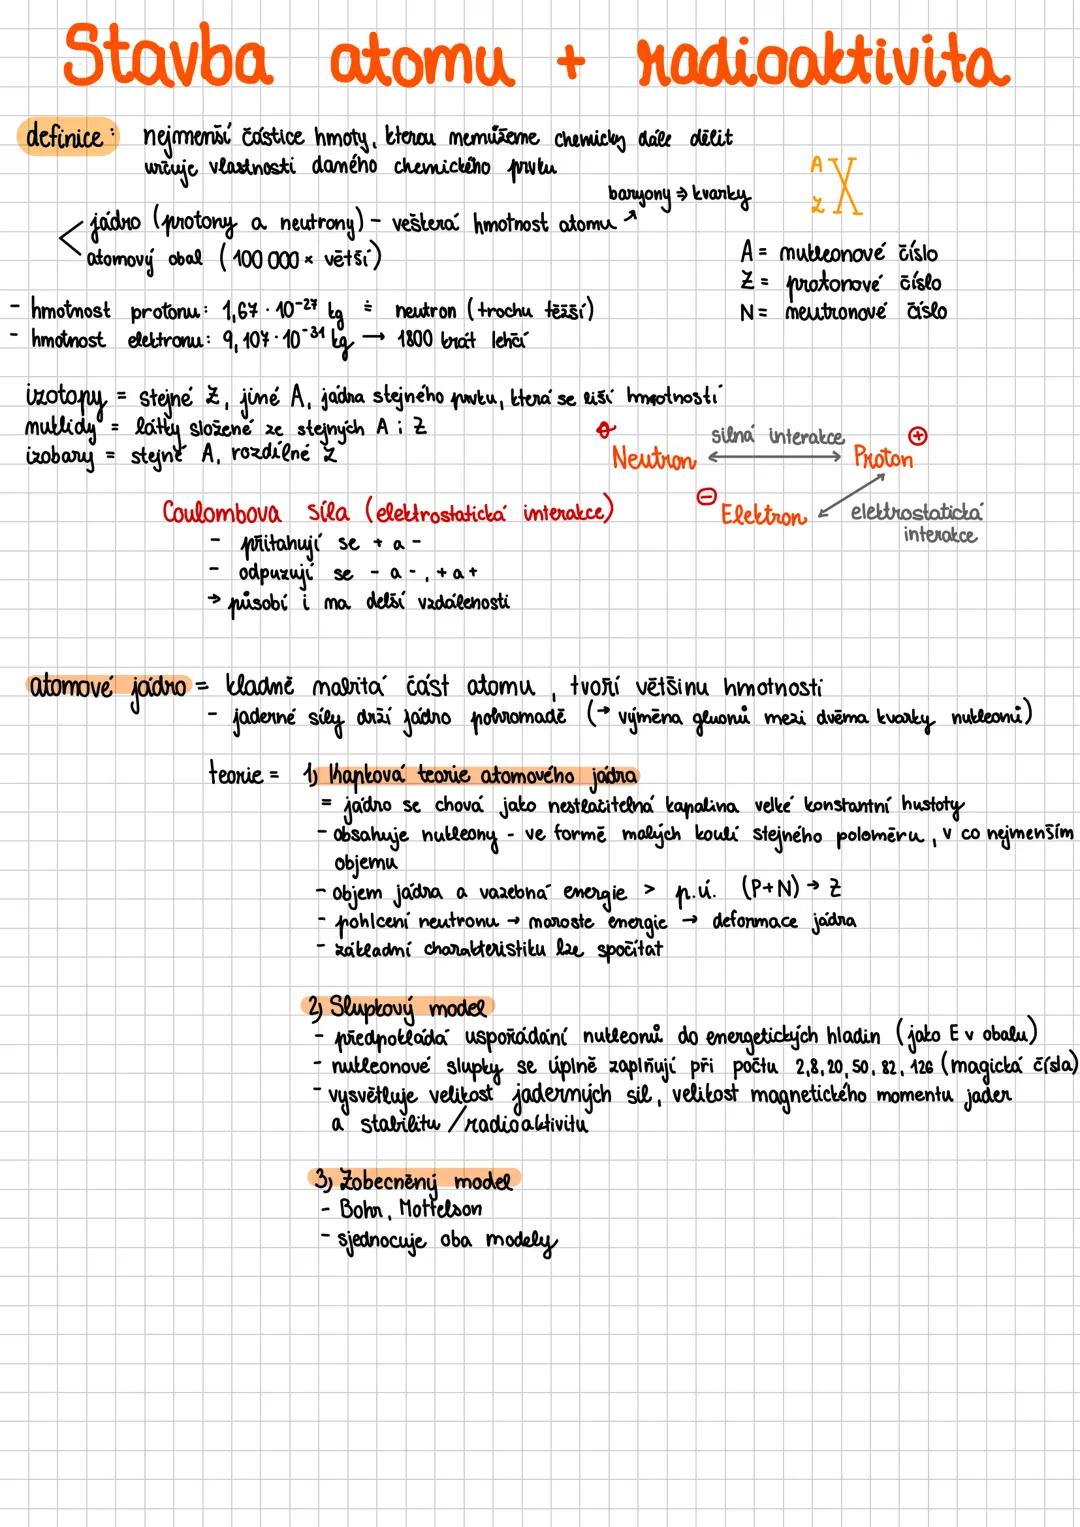 Stavba atomu + radioaktivita
definice: nejmenší částice hmoty, kterou nemůžeme chemicky dále dělit
určuje vlastnosti daného chemického prvku
baryony ⇒ kvarky
jádro (protony a neutrony) - veškerá hmotnost atomu ↗
atomový obal (100 000 × větší)
A
Z X
A = nukleonové číslo
Z = protonové číslo
N = neutronové číslo
- hmotnost protonu: 1,67 · 10⁻²⁷ kg ≐ neutron (trochu těžší)
- hmotnost elektronu: 9,107 · 10⁻³¹ kg → 1800 krát lehčí
izotopy = stejné Z, jiné A, jádra stejného prvku, která se liší hmotností
nuklidy = látky složené ze stejných A i Z
izobary = stejné A, rozdílné Z
silná interakce
Neutron ↔ Proton ⊕
⊖ Elektron ↔ elektrostatická
interakce
Coulombova síla (elektrostatická interakce)
- přitahují se + a -
- odpuzují se - a -, + a +
→ působí i na delší vzdálenosti
atomové jádro = kladně nabitá část atomu, tvoří většinu hmotnosti
- jaderné síly drží jádro pohromadě (→ výměna gluonů mezi dvěma kvarky nukleonů)
teorie = 1) Kapková teorie atomového jádra
= jádro se chová jako nestlačitelná kapalina velké konstantní hustoty
- obsahuje nukleony - ve formě malých koulí stejného poloměru, v co nejmenším
objemu
- objem jádra a vazebná energie > p.ú. (P+N) → Z
- pohlcení neutronu → naroste energie → deformace jádra
- základní charakteristiku lze spočítat
2) Slupkový model
- předpokládá uspořádání nukleonů do energetických hladin (jako E v obalu)
- nukleonové slupky se úplně zaplňují při počtu 2, 8, 20, 50, 82, 126 (magická čísla)
- vysvětluje velikost jaderných sil, velikost magnetického momentu jader
a stabilitu / radioaktivitu
3) Zobecněný model
- Bohr, Mottelson
- sjednocuje oba modely